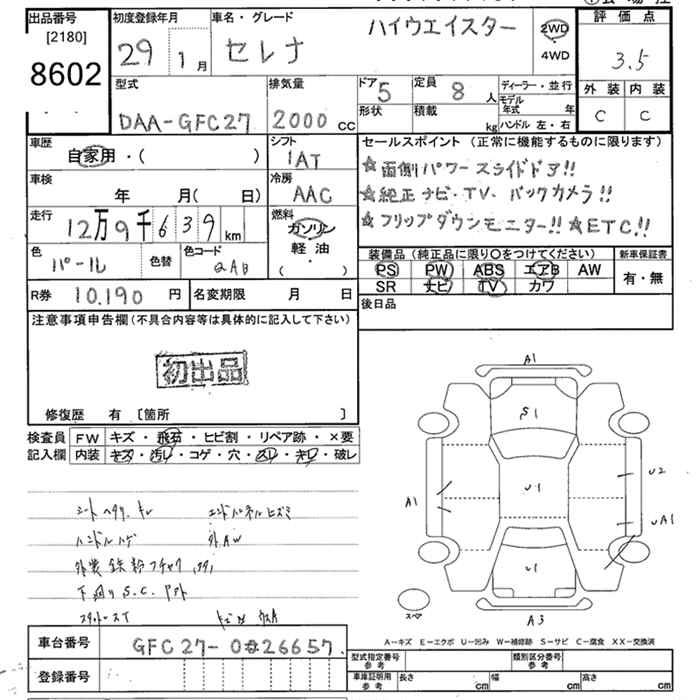 出品番号 初度登録年月 車名・グレード ハイウエイスター 2WD 評価点
[2180] 29 1月 セレナ ・ 3.5
8602 4WD
型式 排気量 ドア 5 定員 8人 ディーラー・並行 外装 内装
DAA-GFC27 2000cc 形状 積載 kg モデル年式 年 C C
ハンドル左・右
車歴 シフト セールスポイント(正常に機能するものに限ります)
自家用・( ) IAT ☆両側パワースライドドア!!
車検 冷房 ☆純正ナビ・TV、バックカメラ!!
年 月( 日) AAC ☆フリップダウンモニター!! ☆ETC!!
走行 12万9千639km 燃料 ガソリン
軽油
・( )
色 色替 色コード 装備品(純正品に限り○をつけてください) 新車保証書
パール QAB PS PW ABS エアB AW 有・無
SR ナビ TV カワ
R券 10,190円 名変期限 月 日 後日品
注意事項申告欄(不具合内容等は具体的に記入して下さい)
初出品
修復歴 有 [箇所 ]
検査員 FW キズ・飛石・ヒビ割・リペア跡・×要
記入欄 内装 キズ・汚レ・コゲ・穴・スレ・キレ・破レ
A1
S1
U1
A1
U2
UA1
U1
A3
スペア
シートヘタリ、キレ エンドパネルヒズミ
ハンドルハゲ 外AW
外装鉄粉フチャク
下廻りS.C.
A-キズ E-エクボ U-凹み W-補修跡 S-サビ C-腐食 XX-交換済
車台番号 GFC27-026657
登録番号
型式指定番号 参考 類別区分番号 参考
車庫証明用 参考 長さ cm 幅 cm 高さ cm